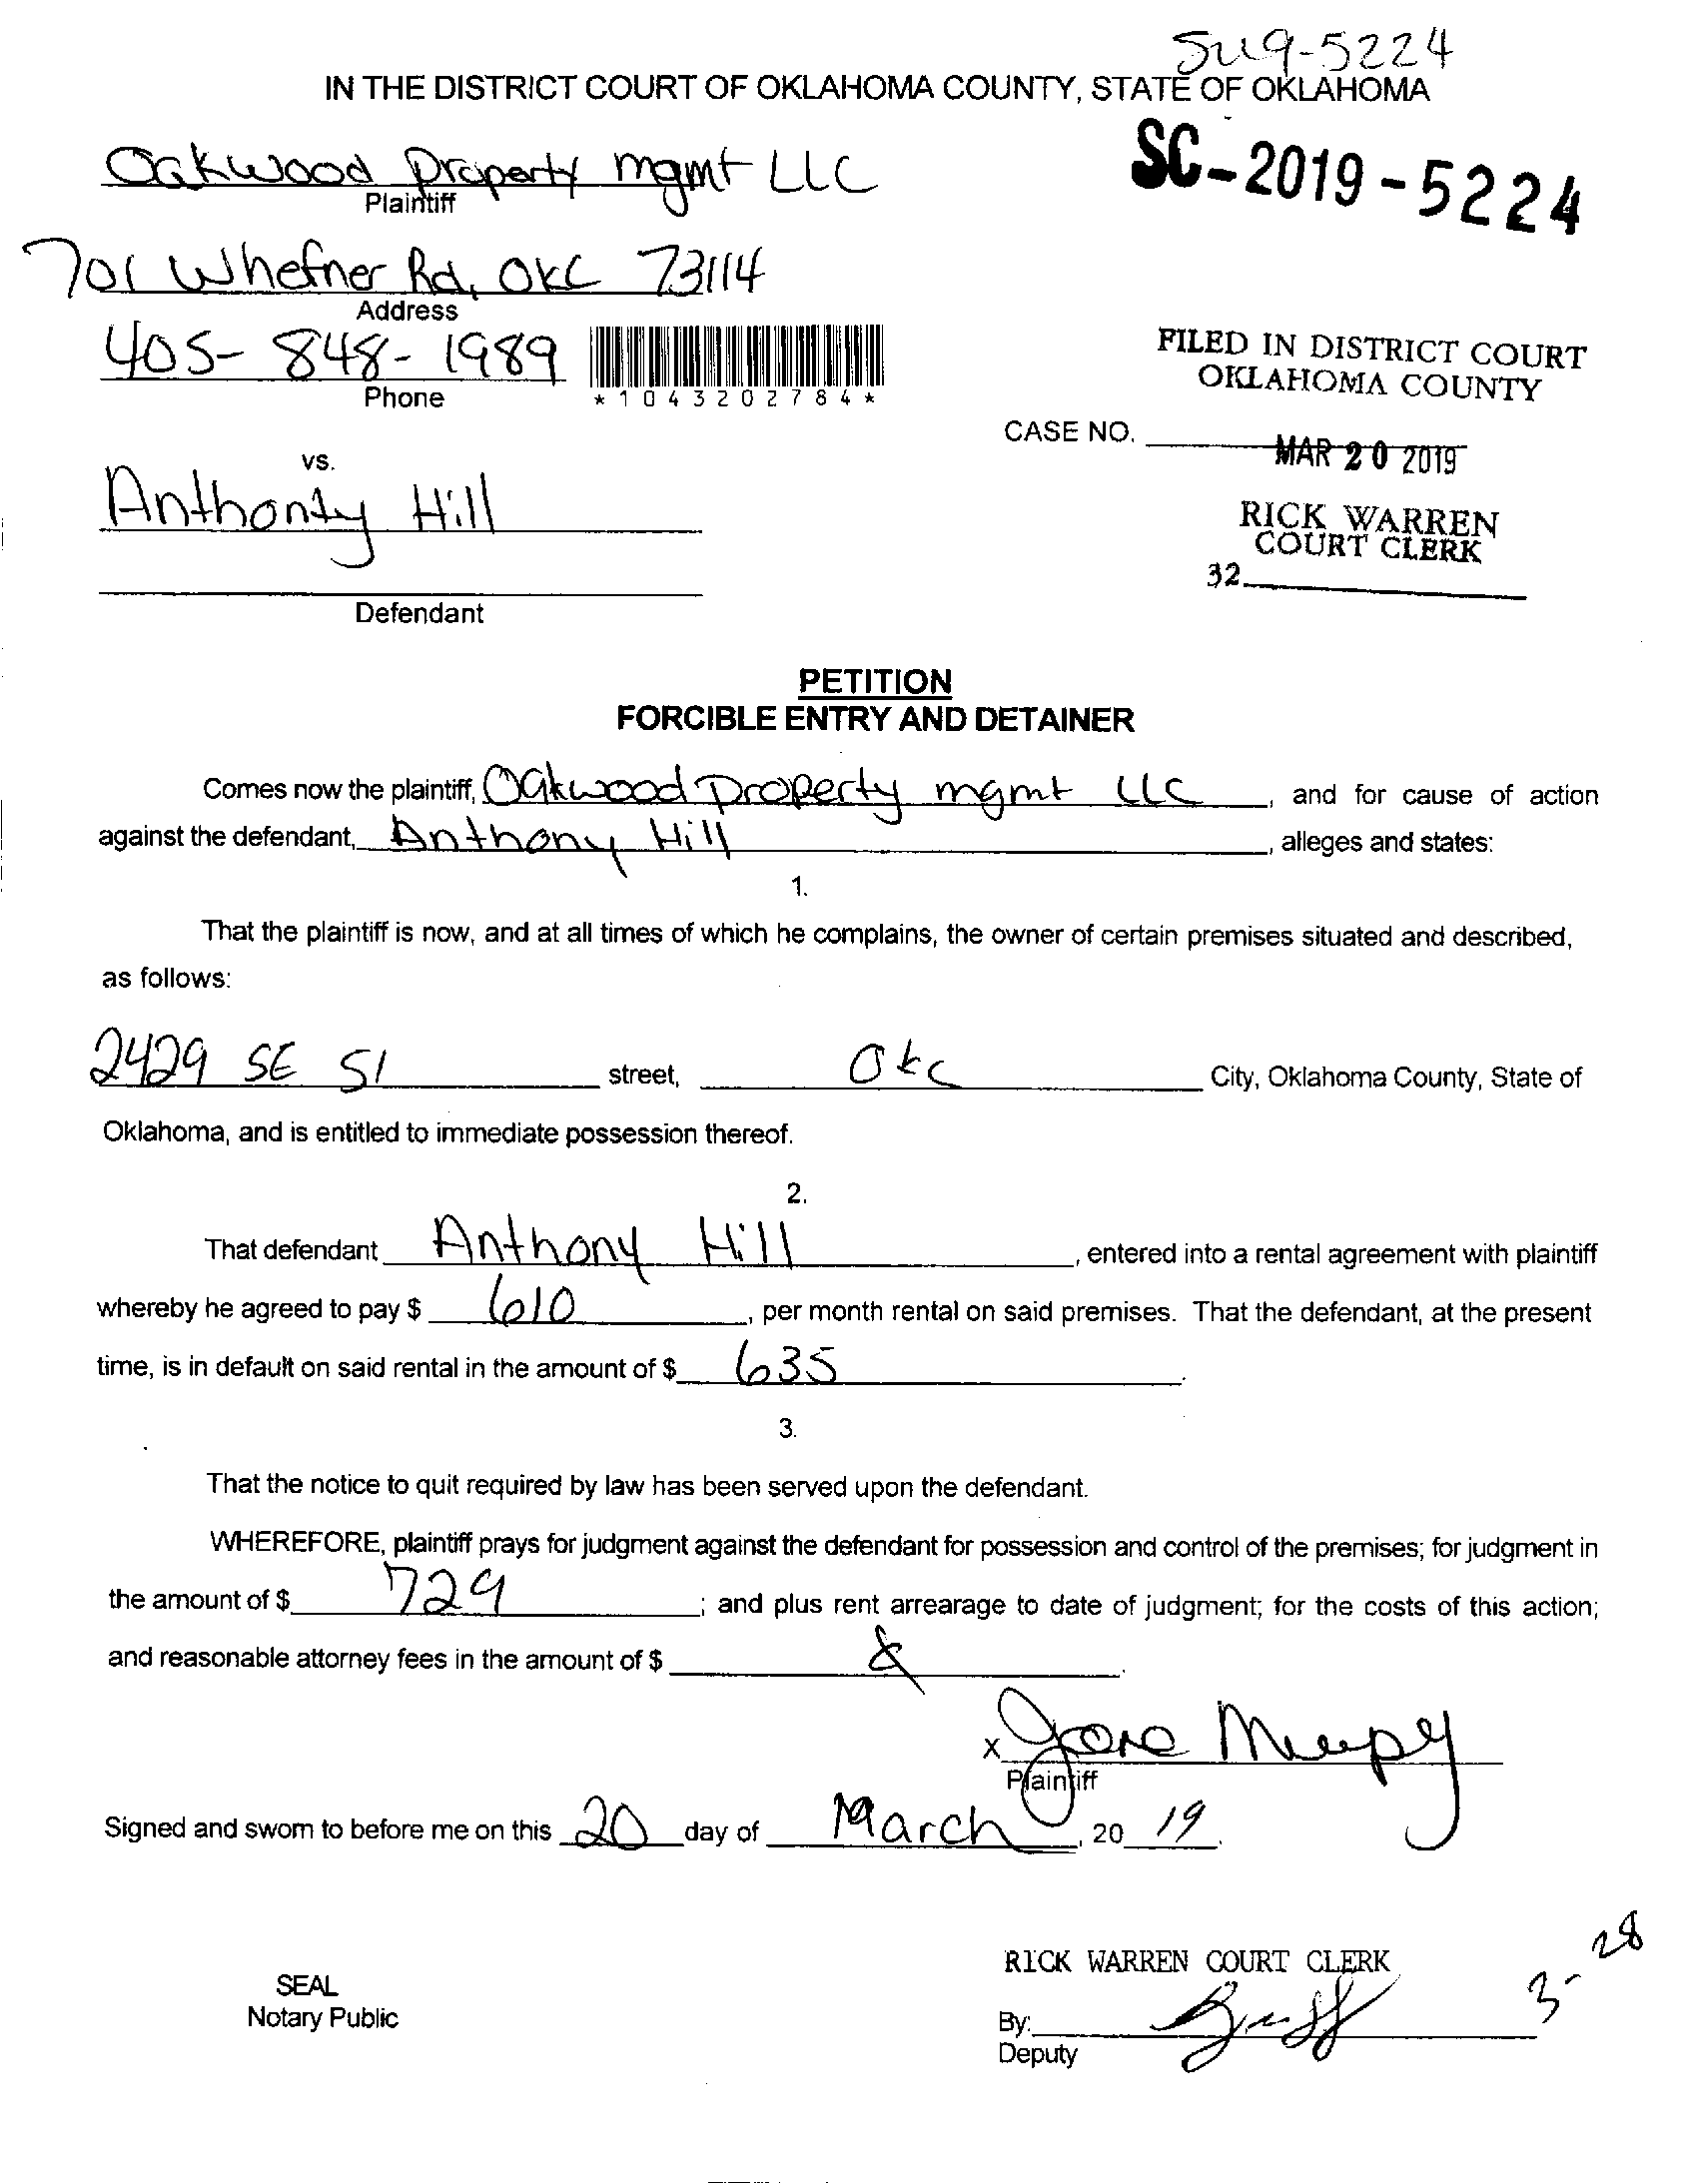 SC19-5224
IN THE DISTRICT COURT OF OKLAHOMA COUNTY, STATE OF OKLAHOMA
Oakwood Property mgmt LLC
SC-2019-5224
Plaintiff
701 Whefner Rd, OKC 73114
Address
405-848-1989
Phone
*1043202784*
FILED IN DISTRICT COURT
OKLAHOMA COUNTY
CASE NO.
MAR 20 2019
vs.
Anthonty Hill
RICK WARREN
COURT CLERK
32
Defendant
PETITION
FORCIBLE ENTRY AND DETAINER
Comes now the plaintiff, Oakwood Property mgmt LLC, and for cause of action
against the defendant, Anthony Hill, alleges and states:
1.
That the plaintiff is now, and at all times of which he complains, the owner of certain premises situated and described,
as follows:
2429 SE 51 street, OKC City, Oklahoma County, State of
Oklahoma, and is entitled to immediate possession thereof.
2.
That defendant Anthony Hill, entered into a rental agreement with plaintiff
whereby he agreed to pay $ 610, per month rental on said premises. That the defendant, at the present
time, is in default on said rental in the amount of $ 635.
3.
That the notice to quit required by law has been served upon the defendant.
WHEREFORE, plaintiff prays for judgment against the defendant for possession and control of the premises; for judgment in
the amount of $ 729; and plus rent arrearage to date of judgment; for the costs of this action;
and reasonable attorney fees in the amount of $
x
Plaintiff
Signed and sworn to before me on this 20 day of March, 20 19.
SEAL
Notary Public
RICK WARREN COURT CLERK
3-28
By:
Deputy